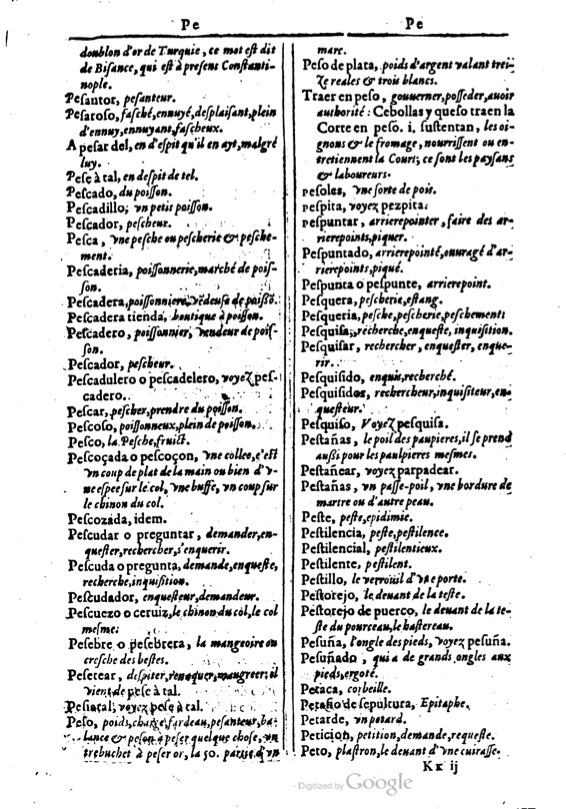 Pe
doublon d'or de Turquie, ce mot eſt dit
de Biſance, qui eſt à preſent Conſtanti-
nople.
Peſantor, peſanteur.
Peſaroſo, faſché, ennuyé, deſplaiſant, plein
d'ennuy, ennuyant, faſcheux.
A peſar del, en d'eſpit qu'il en ayt, malgré
luy.
Peſe à tal, en deſpit de tel.
Peſcado, du poiſſon.
Peſcadillo, vn petit poiſſon.
Peſcador, peſcheur.
Peſca, vne peſche ou peſcherie & peſche-
ment.
Peſcaderia, poiſſonnerie, marché de poiſ-
ſon.
Peſcadera, poiſſonniere, vẽdeuſe de paiſſõ.
Peſcadera tienda, boutique à poiſſon.
Peſcadero, poiſſonnier, vendeur de poiſ-
ſon.
Peſcador, peſcheur.
Peſcadulero o peſcadelero, voyez peſ-
cadero.
Peſcar, peſcher, prendre du poiſſon.
Peſcoſo, poiſſonneux, plein de poiſſon.
Peſco, la Peſche, fruict.
Peſcoçada o peſcoçon, vne collee, c'eſt
vn coup de plat de la main ou bien d'v-
ne eſpee ſur le col, vne buffe, vn coup ſur
le chinon du col.
Peſcozada, idem.
Peſcudar o preguntar, demander, en-
queſter, rechercher, s'enquerir.
Peſcuda o pregunta, demande, enqueſte,
recherche, inquiſition.
Peſcudador, enqueſteur, demandeur.
Peſcuezo o ceruiz, le chinon du col, le col
meſme.
Peſebre o peſebrera, la mangeoire ou
creſche des beſtes.
Peſetear, deſpiter, renoquer, maugreer: il
vient de peſe à tal.
Peſiatal, voyez peſe à tal.
Peſo, poids, charge, fardeau, peſanteur, ba-
lance & peſon à peſer quelque choſe, vn
trebuchet à peſer or, la 50. partie d'vn
Pe
marc.
Peſo de plata, poids d'argent valant trei-
ze reales & trois blancs.
Traer en peſo, gouuerner, poſſeder, auoir
authorité: Cebollas y queſo traen la
Corte en peſo. i, ſuſtentan, les oi-
gnons & le fromage, nourriſſent ou en-
tretiennent la Cour; ce ſont les payſans
& laboureurs.
peſoles, vne ſorte de pois.
peſpita, voyez pezpita.
peſpuntar, arrierepointer, faire des ar-
rierepoints, piquer.
Peſpuntado, arrierepointé, ouuragé d'ar-
rierepoints, piqué.
Peſpunta o peſpunte, arrierpoint.
Peſquera, peſcherie, eſtang.
Peſqueria, peſche, peſcherie, peſchement:
Peſquiſa, recherche, enqueſte, inquiſition.
Peſquiſar, rechercher, enqueſter, enque-
rir.
Peſquiſido, enquis, recherché.
Peſquiſidor, rechercheur, inquiſiteur, en-
queſteur.
Peſquiſo, Voyez peſquiſa.
Peſtañas, le poil des paupieres, il ſe prend
auſſi pour les paulpieres meſmes.
Peſtañear, voyez parpadear.
Peſtañas, vn paſſe-poil, vne bordure de
martre ou d'autre peau.
Peſte, peſte, epidimie.
Peſtilencia, peſte, peſtilence.
Peſtilencial, peſtilentieux.
Peſtilente, peſtilent.
Peſtillo, le verroüil d'vne porte.
Peſtorejo, le deuant de la teſte.
Peſtorejo de puerco, le deuant de la te-
ſte du pourceau, le haſtereau.
Peſuña, l'ongle des pieds, voyez peſuña.
Peſuñado, qui a de grands ongles aux
pieds, ergoté.
Petaca, corbeille.
Petafio de ſepultura, Epitaphe.
Petarde, vn petard.
Peticion, petition, demande, requeſte.
Peto, plaſtron, le deuant d'vne cuiraſſe.
Kk ij
Digitized by Google